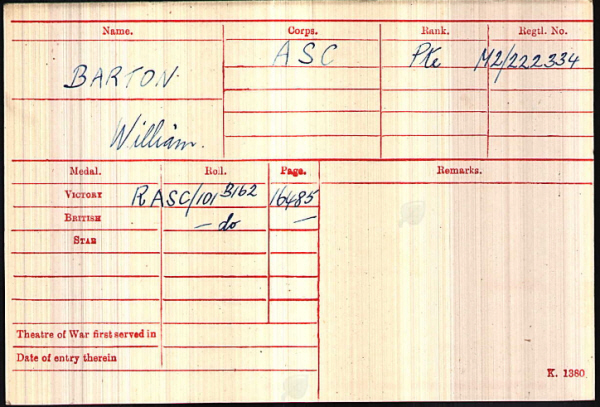 Name. Corps. Rank. Regtl. No.
BARTON. ASC Pte M2/222334
William.
Medal. Roll. Page. Remarks.
VICTORY RASC/101 B162 16485
BRITISH — do —
STAR
Theatre of War first served in
Date of entry therein
K. 1380.